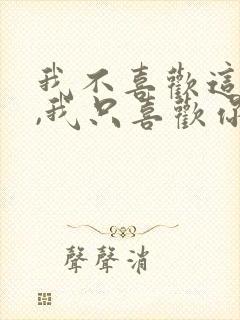 我不喜歡這
,我只喜歡你
聲聲消